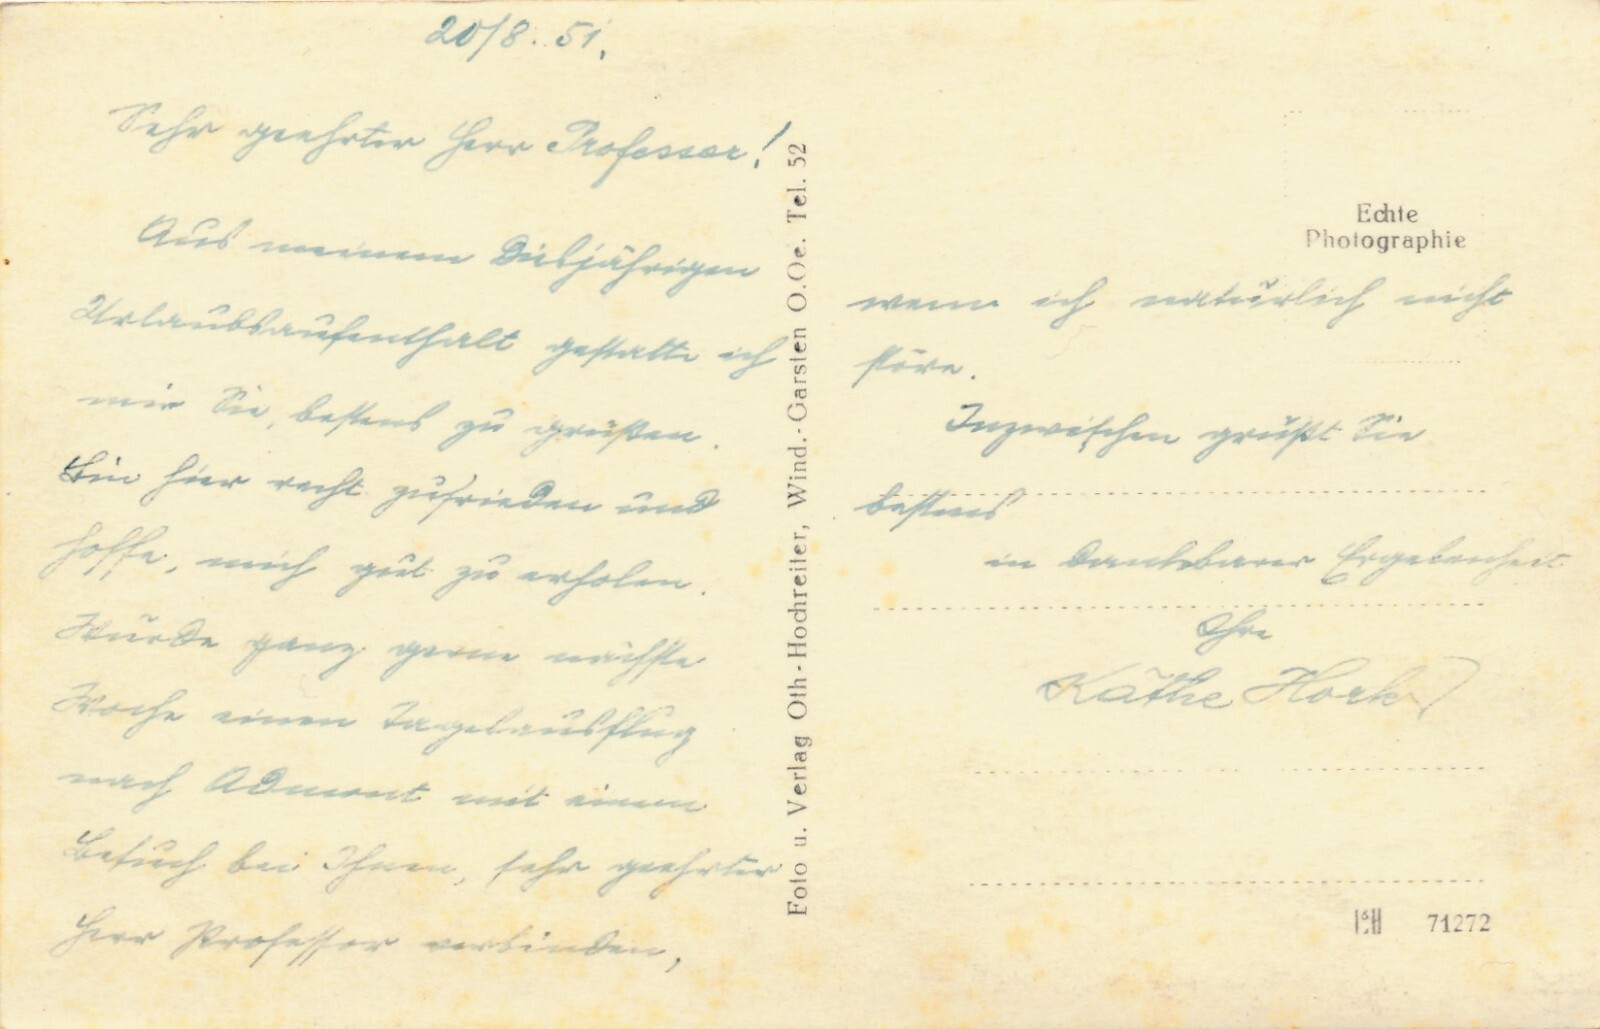 20/8. 51.
Sehr geehrter Herr Professor!
Aus meinem diesjährigen
Urlaubsaufenthalt gestatte ich
mir Sie, bestens zu grüßen.
Bin hier recht zufrieden und
hoffe, mich gut zu erholen.
Würde ganz gerne nächste
Woche einen Tagesausflug
nach Admont mit einem
Besuch bei Ihnen, sehr geehrter
Herr Professor verbinden,
Foto u. Verlag Oth-Hochreiter, Wind.-Garsten O.Oe. Tel. 52
Echte
Photographie
wenn ich natürlich nicht
störe.
Inzwischen grüßt Sie
bestens
in dankbarer Ergebenheit
Ihre
Käthe
71272